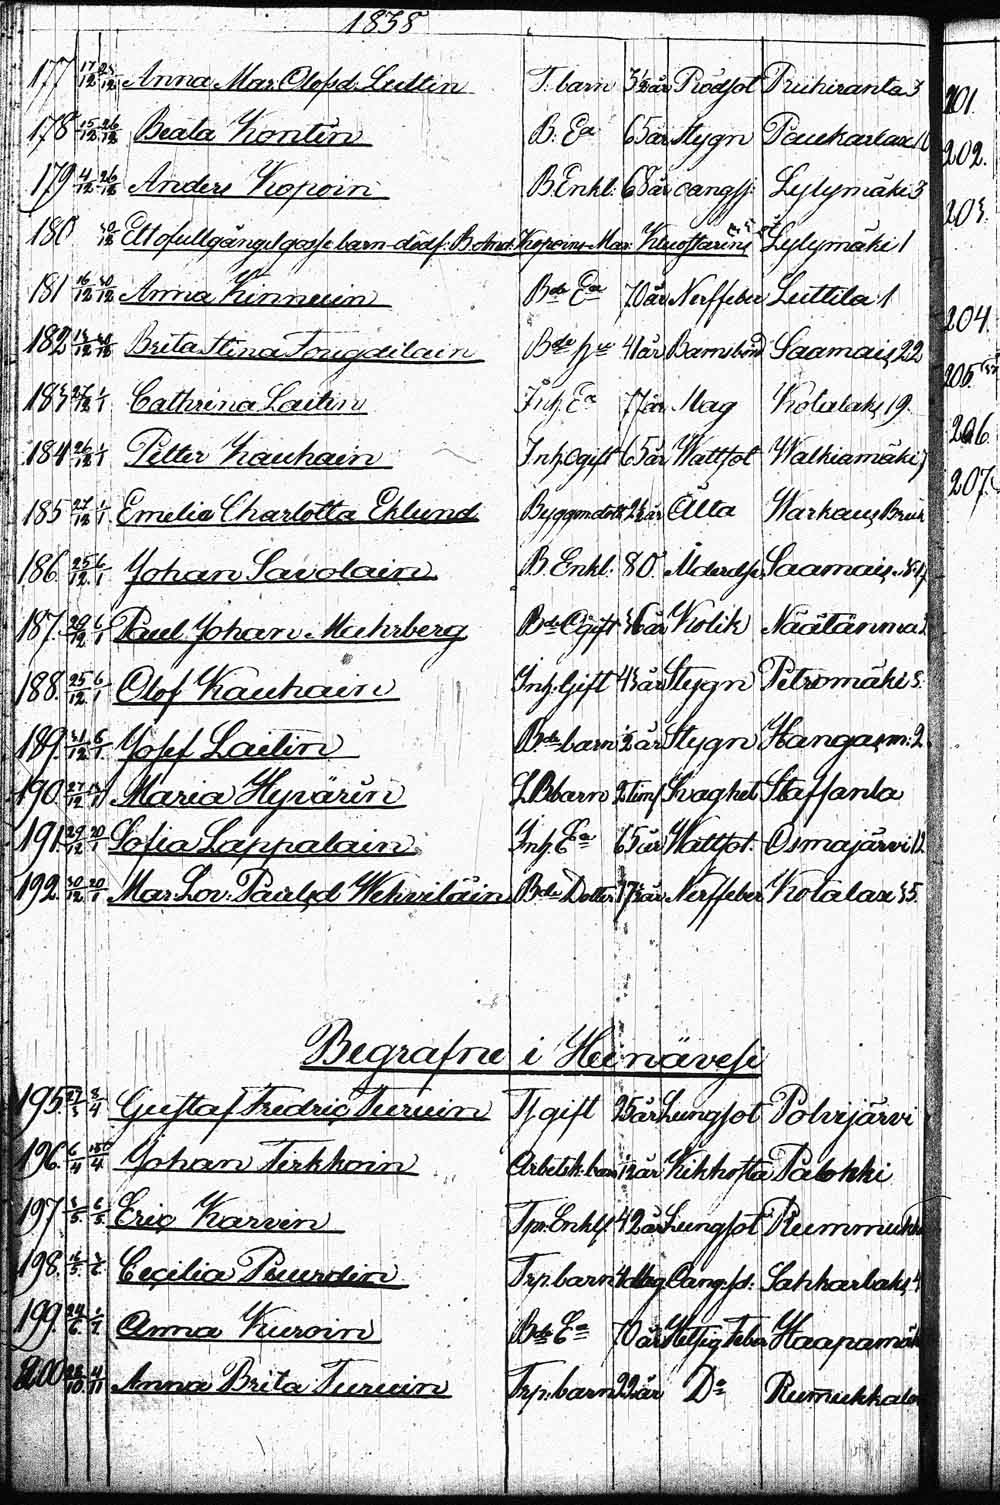 1838
177 17/12 25/12 Anna Mar. Olofsd. Luttin T. barn 3½ år Rödsot Ruhiranta 3
178 15/12 26/12 Beata Kontin B. Ea 65 år Stygn Paukarlax
179 4/12 26/12 Anders Kopoin B Enkl. 68 år oangfj. Lylymäki 3
180 30/12 Ett ofullgångit gosse barn dödf. B. And. Kopoins Mar. Lylymäki 1
181 16/12 30/12 Anna Kinnuin Bde Ea 70 år Nerffeber Luttila 1
182 Brita Stina Tougdilain Bde hu 41 år Barnsbörd Saamais 22
183 27/12 1/1 Cathrina Laitin Inh. Ea 77 år Mag Kotalaks 19.
184 26/12 1/1 Petter Kauhain Inh. Ogift 65 år Wattsot Walkiamäki 7
185 27/12 1/1 Emelia Charlotta Eklund Byggm. dott. år Älta Warkaus Bruk
186. 25/12 6/1 Johan Savolain B. Enkl. 80. Ålderdr. Saamais
187. 29/12 6/1 Paul Johan Muhrberg Bde Ogift 36 år Kolik Näätänma
188. 25/12 6/1 Olof Kauhain Inh. Gift 43 år Stygn Petromäki 3.
189. 31/12 6/1 Josef Laitin Bde barn ½ år Stygn Kangasm: 2
190. 27/12 Maria Hyvärin L. B barn 2 tim Svaghet Staffanla
191. 29/12 20/1 Sofia Lappalain Inh. Ea 65 år Wattsot. Osmajärvi 12
192. 30/12 20/1 Mar. Lov. Paulsd Wehviläin Bde Dotter 17½ år Nerffeber Kotalax 35.
Begrafne i Heinävesi
195. 27/3 8/4 Gustaf Fredric Turuin Tj gift 25 år Lungsot Polvijärvi
196. 6/4 15/4 Johan Tirkkoin Arbetsk. barn ½ år Kikhosta Palokki
197 3/5 6/5 Eric Karvin Tpr. Enkl 42 år Lungsot Rummuk
198. 16/5 Cecilia Puurdin Trp. barn Oang. sd. Sahkarlaks 4
199. 24/6 1/7 Anna Kuroin Bde Ea 70 år Hetsig Feber Haapamäk
200 28/10 4/11 Anna Brita Turuin Trp. barn 22 år Do Rumukkala
201.
202.
203.
204.
205.
206.
207.